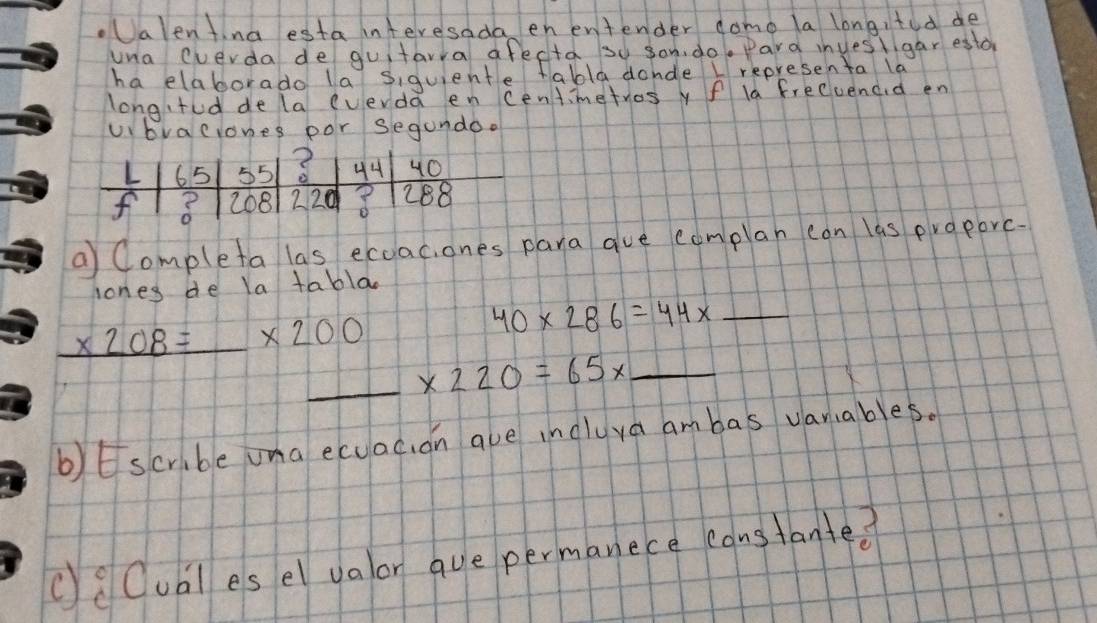 •Valentina esta interesada en entender como la longitud de
una cuerda de guitarra afecta su sonido. Para investigar esto,
ha elaborado la siguiente tabla donde L representa la
longitud de la cuerda en centimetros y f la frecuencia en
vibraciones por segundo.
L | 65 | 55 | ? | 44 | 40
f | ? | 208 | 220 | ? | 288
a) Completa las ecuaciones para que complan con las proporc-
iones de la tabla.
40 x 286 = 44 x ___
___ x 208 = ___ x 200
___ x 220 = 65 x ___
b) Escribe una ecuación que incluya ambas variables.
c) ¿Cuál es el valor que permanece constante?